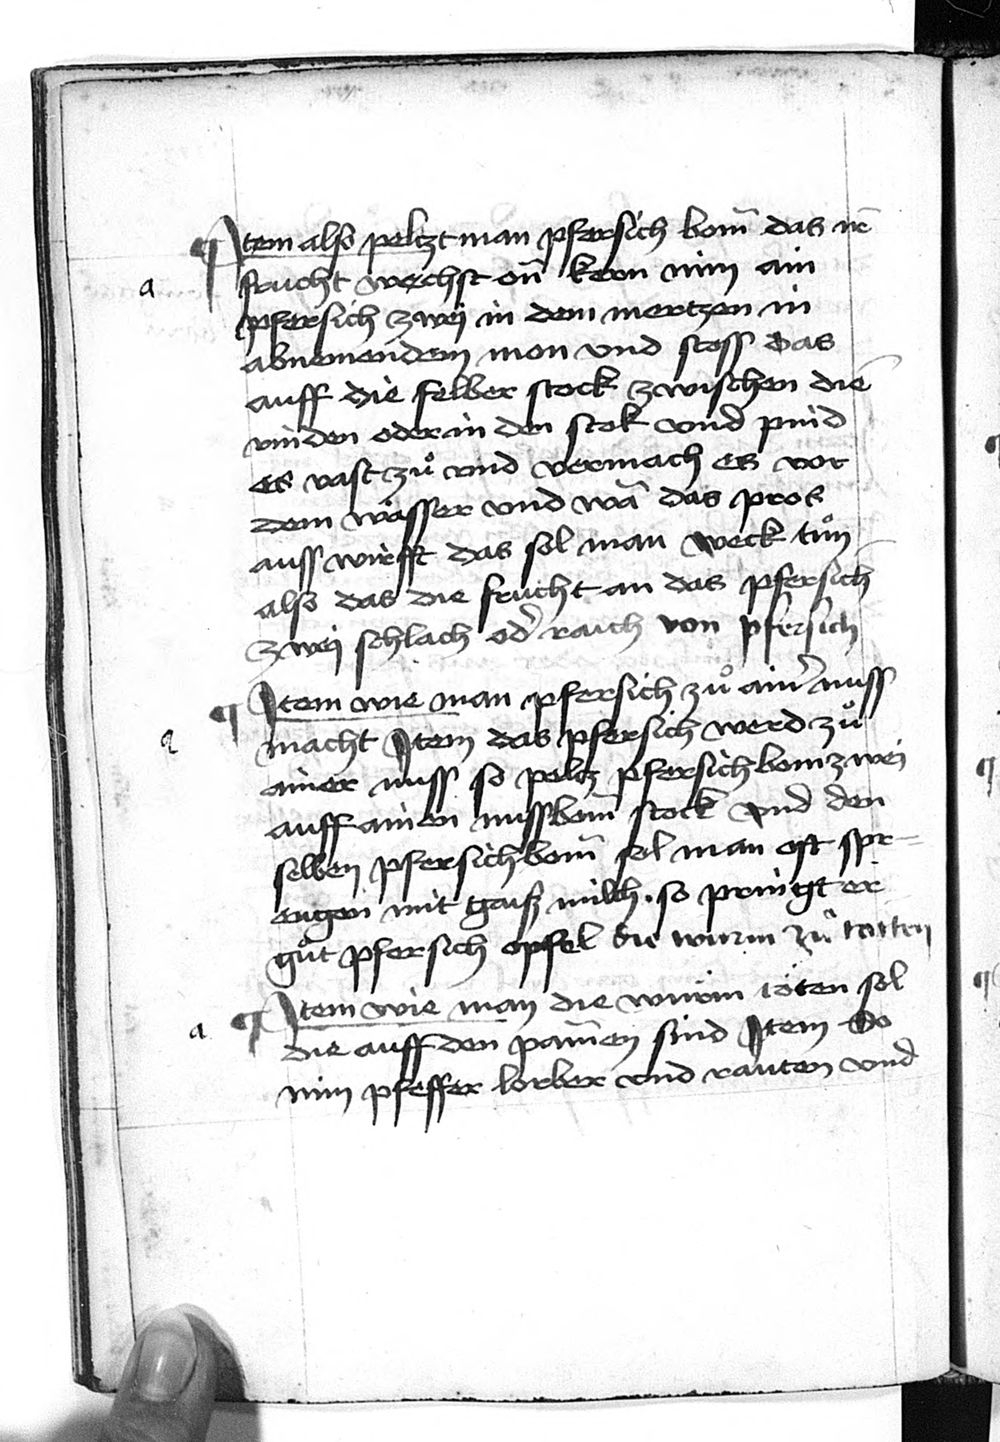 ¶ Item also peltzt man pfersich bom̄ das ir̄
a frucht wechst on̄ kern nim ain
pfersich zwei in dem mertzen in
abnemendem mon vnd stoss das
auff die felber stock zwischen die
rinden oder in den stok vnd pind
es vast zů vnd vermach es vor
dem wasser vnd wā das pros
auss wirfft das sol man weck tůn
also das die frucht an das pfersich
zwei schlach od' raich von pfersich
¶ Item wie man pfersich zů ain' nuss
a macht Item das pfersich werd zů
ainer nuss so peltz pfersichbom zwei
auff ainen nussbom̄ stock vnd den
selben pfersichbom̄ sol man oft spr=
engen mit gaiß milch . so pringt er
gůt pfersich opfel die wurm zů totten
a ¶ Item wie man die wurm töten sol
die auff den pam̄en sind Item So
nim pfeffer lorber vnd rauten vnd